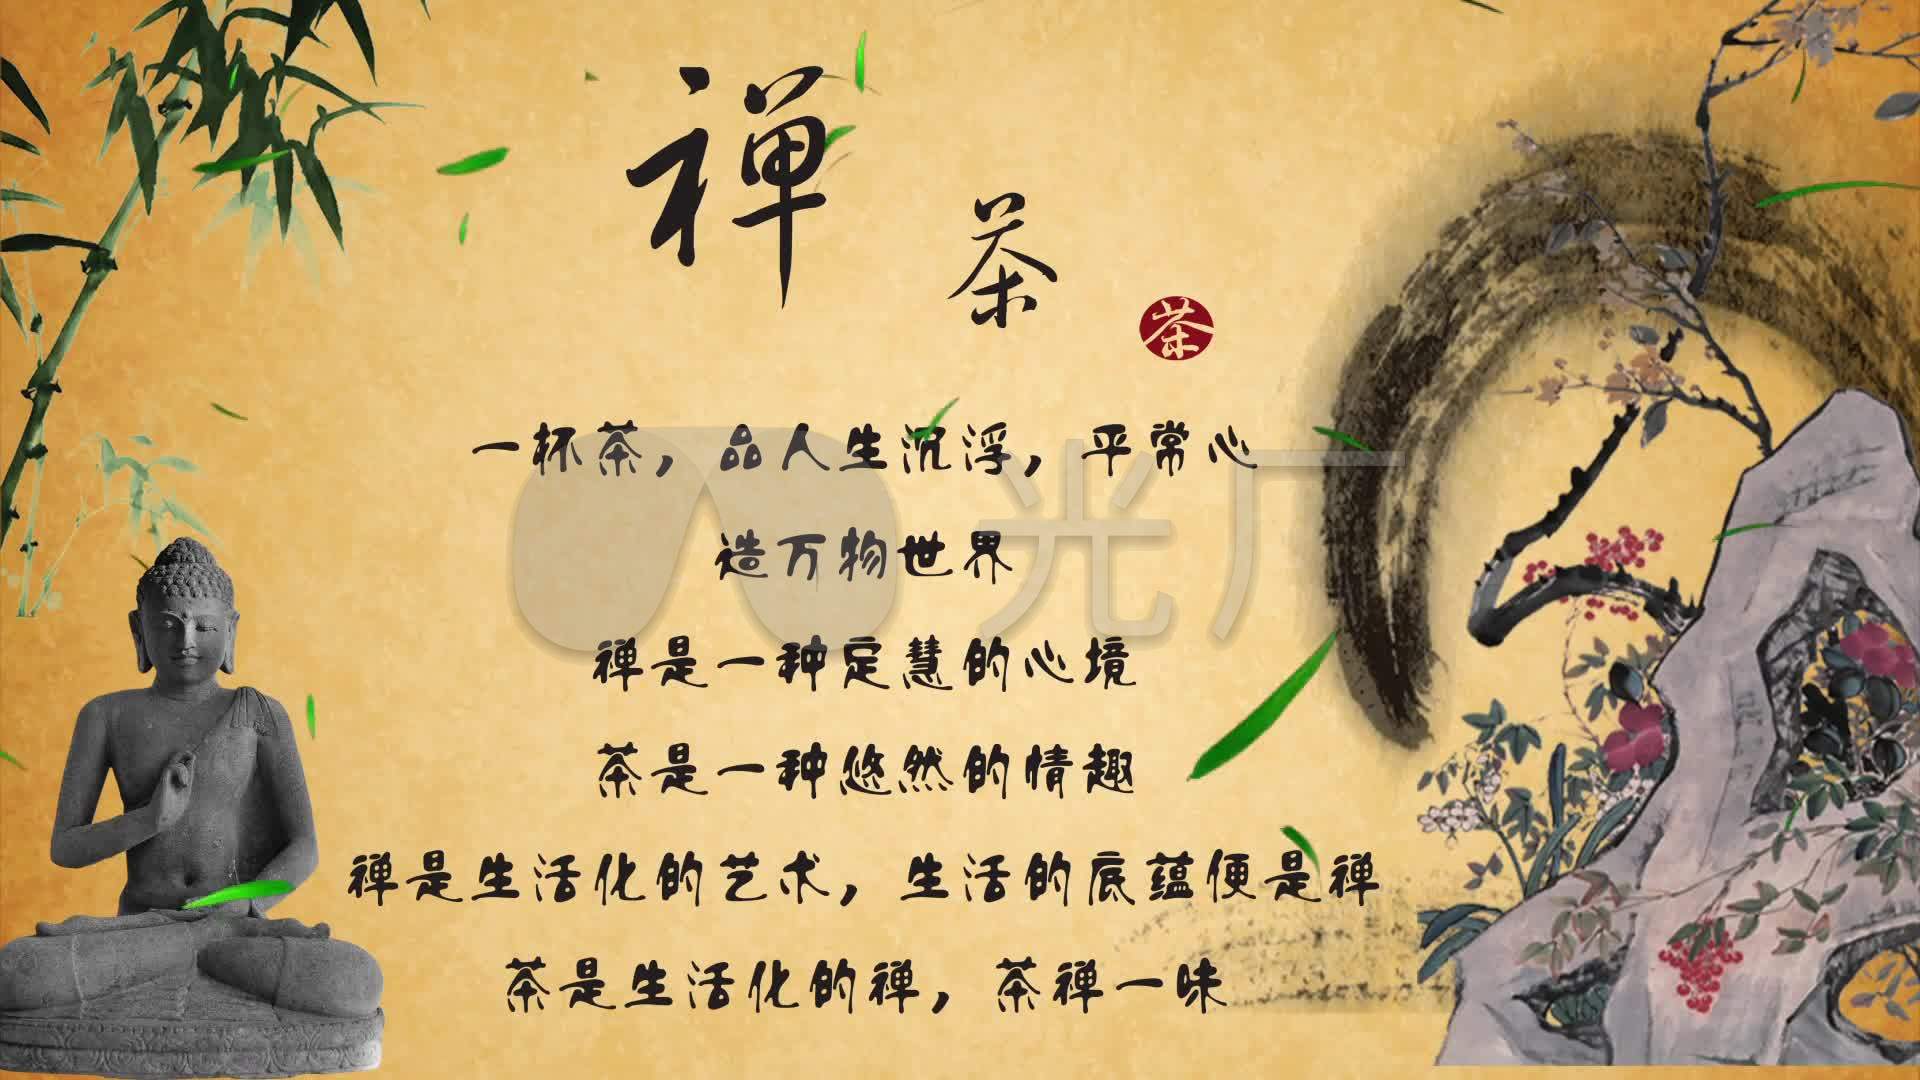 禅
茶
茶
一杯茶，品人生沉浮，平常心
造万物世界
禅是一种定慧的心境
茶是一种悠然的情趣
禅是生活化的艺术，生活的底蕴便是禅
茶是生活化的禅，茶禅一味
光厂